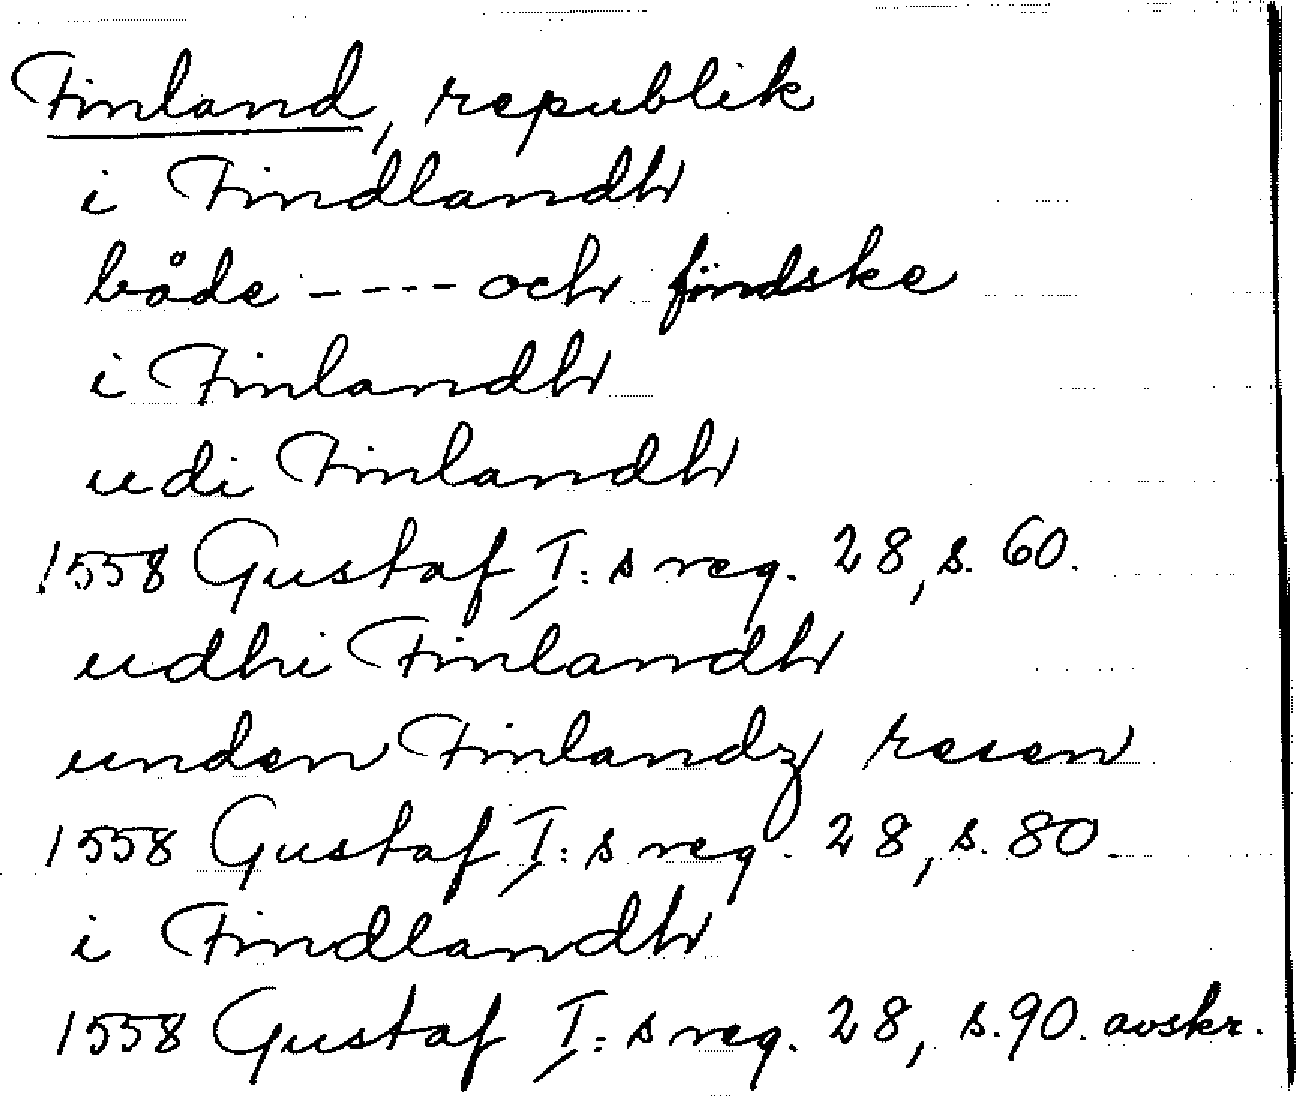 Finland, republik
i Findlandh
både ---- och findske
i Finlandh
udi Finlandh
1558 Gustaf I:s reg. 28, s. 60.
udhi Finlandh
unden Finlandz resen
1558 Gustaf I:s reg. 28, s. 80
i Findlandh
1558 Gustaf I:s reg. 28, s. 90. avskr.